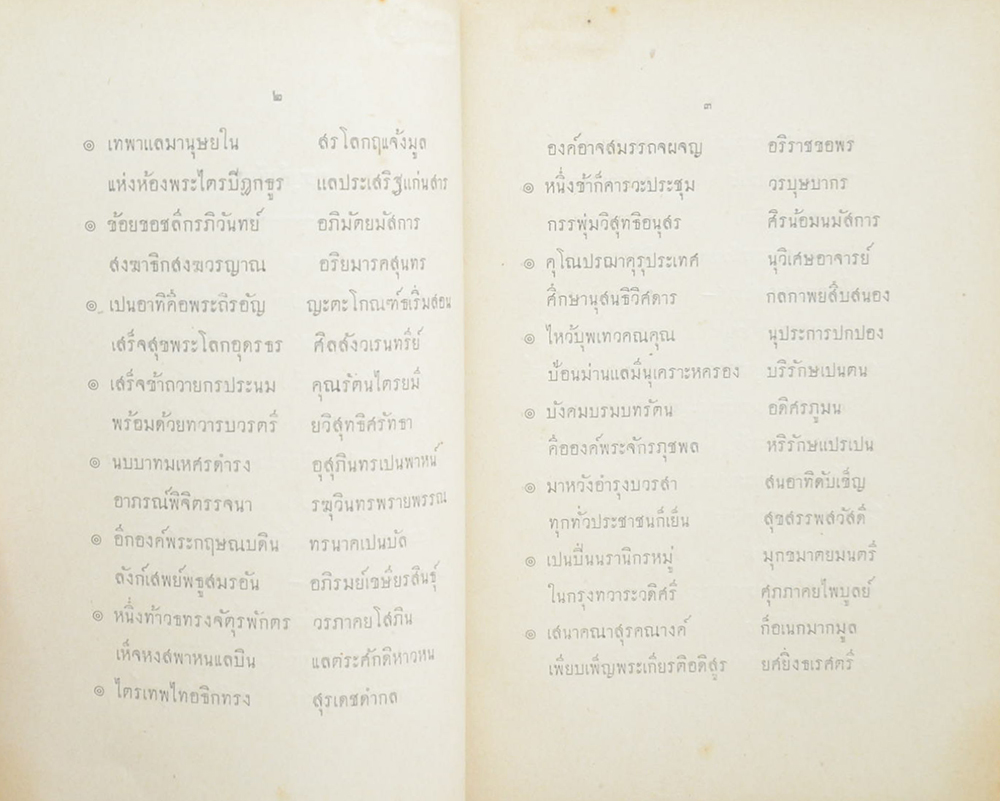 ๒
๏ เทพาแลมานุษยใน สรโลกฤแจ้งมูล
แห่งห้องพระไตรปีฎกธูร แลประเสริฐแก่นสาร
๏ ข้อยขอชลีกรภิวันทย์ อภิมัตยมัสการ
สงฆาธิกสงฆวรญาณ อริยมารคสุนทร
๏ เปนอาทิคือพระถิรอัญ ญะตะโกณฑ์ธเริ่มสอน
เสร็จสุขพระโลกอุดรธร ศีลสังวเรนทรีย์
๏ เสร็จข้าถวายกรประนม คุณรัตนไตรยมี
พร้อมด้วยทวารบวรตรี ยวิสุทธิศรัทธา
๏ นบบาทมเหศรดำรง อุสุภินทรเปนพาหน์
อาภรณ์พิจิตรรจนา รฆุวินทรพรายพรรณ
๏ อีกองค์พระกฤษณบดิน ทรนาคเปนบัล
ลังก์เสพย์พธูสมรอัน อภิรมย์เขษียรสินธุ์
๏ หนึ่งท้าวธทรงจัตุรพักตร วรภาคยโสภิน
เห็จหงสพาหนแลบิน แลต่ระศักดิหาวหน
๏ ไตรเทพไทอธิกทรง สุรเดชดำกล
๓
องค์อาจสมรรถจผจญ อริราชขอพร
๏ หนึ่งข้าก็คารวะประชุม วรบุษบากร
กรรพุ่มวิสุทธิอนุสร ศิรน้อมนมัสการ
๏ คุโณปรฌาคุรุประเทศ นุวิเศษอาจารย์
ศึกษานุสนธิวิศดาร กลกาพยสืบสนอง
๏ ไหว้บุพเทวคณคุณ นุประการปกปอง
ป้อนม่านแลมึนุเคราะหครอง บริรักษเปนตน
๏ บังคมบรมบทรัตน อดิศรภูมน
คือองค์พระจักรภุชพล หริรักษแปรเปน
๏ มาหวังอำรุงบวรสา สนอาทิดับเข็ญ
ทุกทั่วประชาชนก็เย็น สุขสรรพสวัสดี
๏ เปนปิ่นนรานิกรหมู่ มุกขมาตยมนตรี
ในกรุงทวาระวดิศรี ศุภภาคยไพบูลย์
๏ เสนาคณาสุรคณางค์ ก็อเนกมากมูล
เพียบเพ็ญพระเกียรติอดิสูร ยศยิ่งธเรศตรี